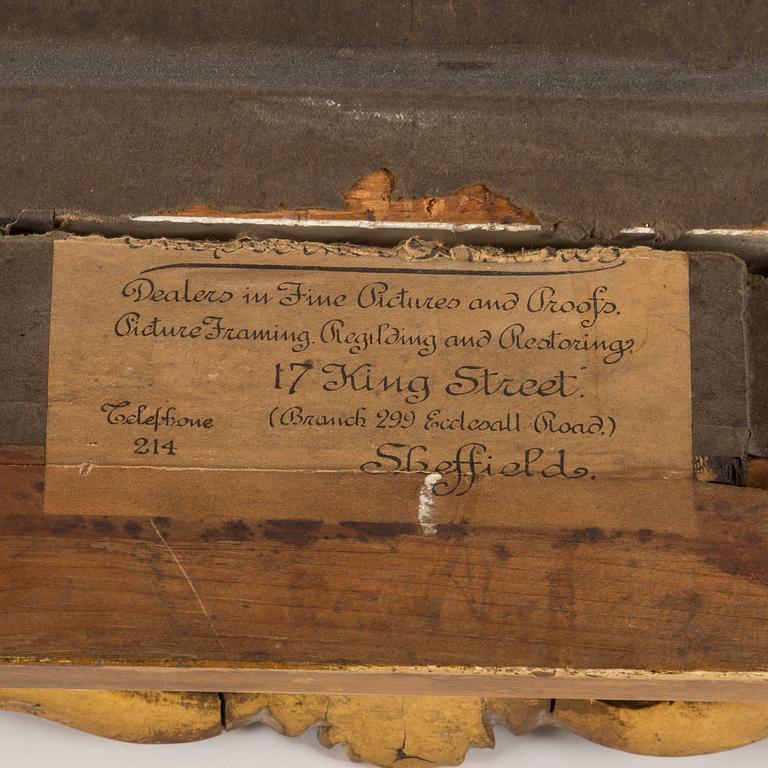 Dealers in Fine Pictures and Proofs.
Picture Framing. Regilding and Restoring.
17 King Street.
Telephone (Branch 299 Ecclesall Road.)
214
Sheffield.